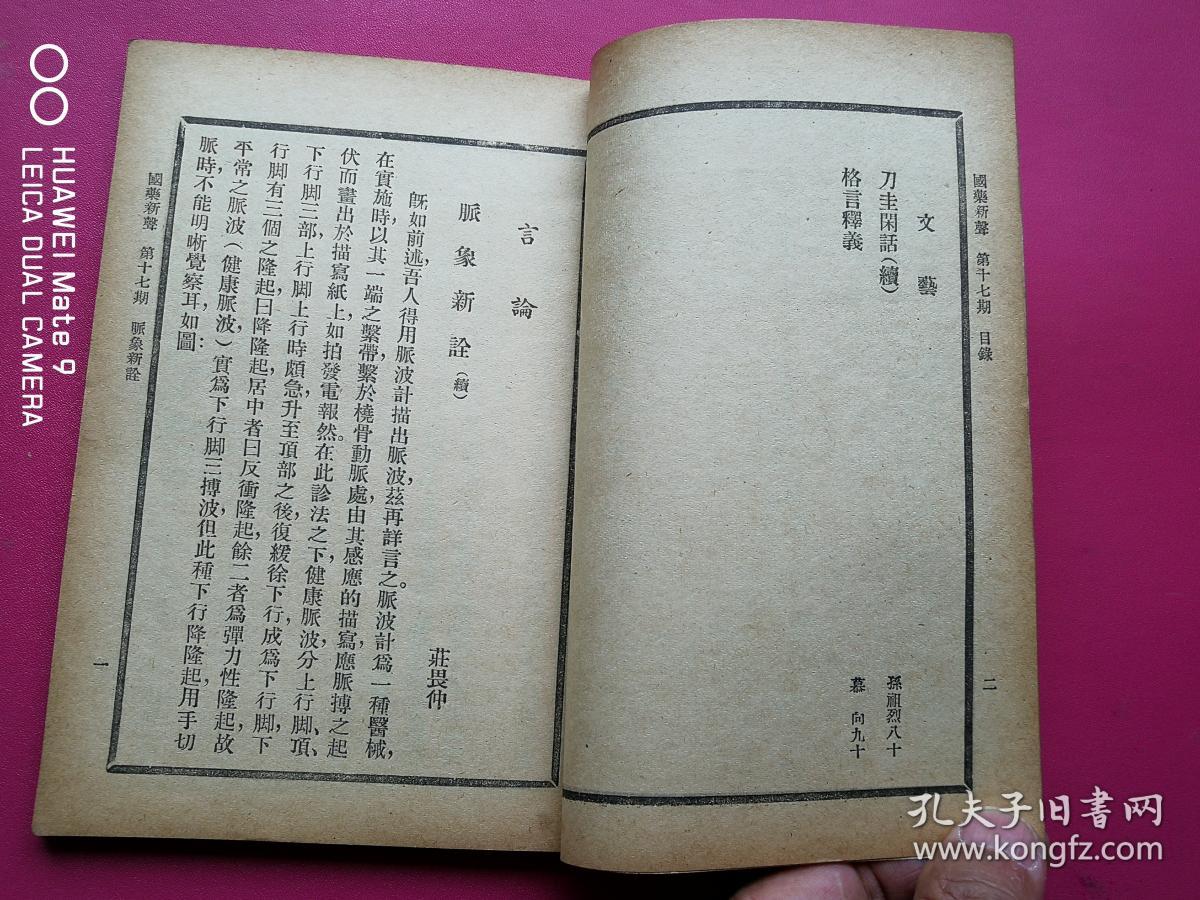 國藥新聲 第十七期 目錄
二
文藝
刀圭閑話(續) 孫祖烈八十
格言釋義 慕向九十
言論
脈象新詮(續) 莊畏仲
旣如前述,吾人得用脈波計描出脈波,茲再詳言之。脈波計爲一種醫械,
在實施時,以其一端之繫帶,繫於橈骨動脈處,由其感應的描寫,應脈搏之起
伏而畫出於描寫紙上,如拍發電報然。在此診法之下,健康脈波,分上行脚、頂、
下行脚三部,上行脚上行時頗急,升至頂部之後,復緩徐下行,成爲下行脚,下
行脚有三個之隆起,曰降隆起,居中者曰反衝隆起,餘二者爲彈力性隆起,故
平常之脈波(健康脈波)實爲下行脚三搏波,但此種下行降隆起,用手切
脈時,不能明晰覺察耳,如圖:
國藥新聲 第十七期 脈象新詮
一
HUAWEI Mate 9
LEICA DUAL CAMERA
孔夫子旧书网
www.kongfz.com